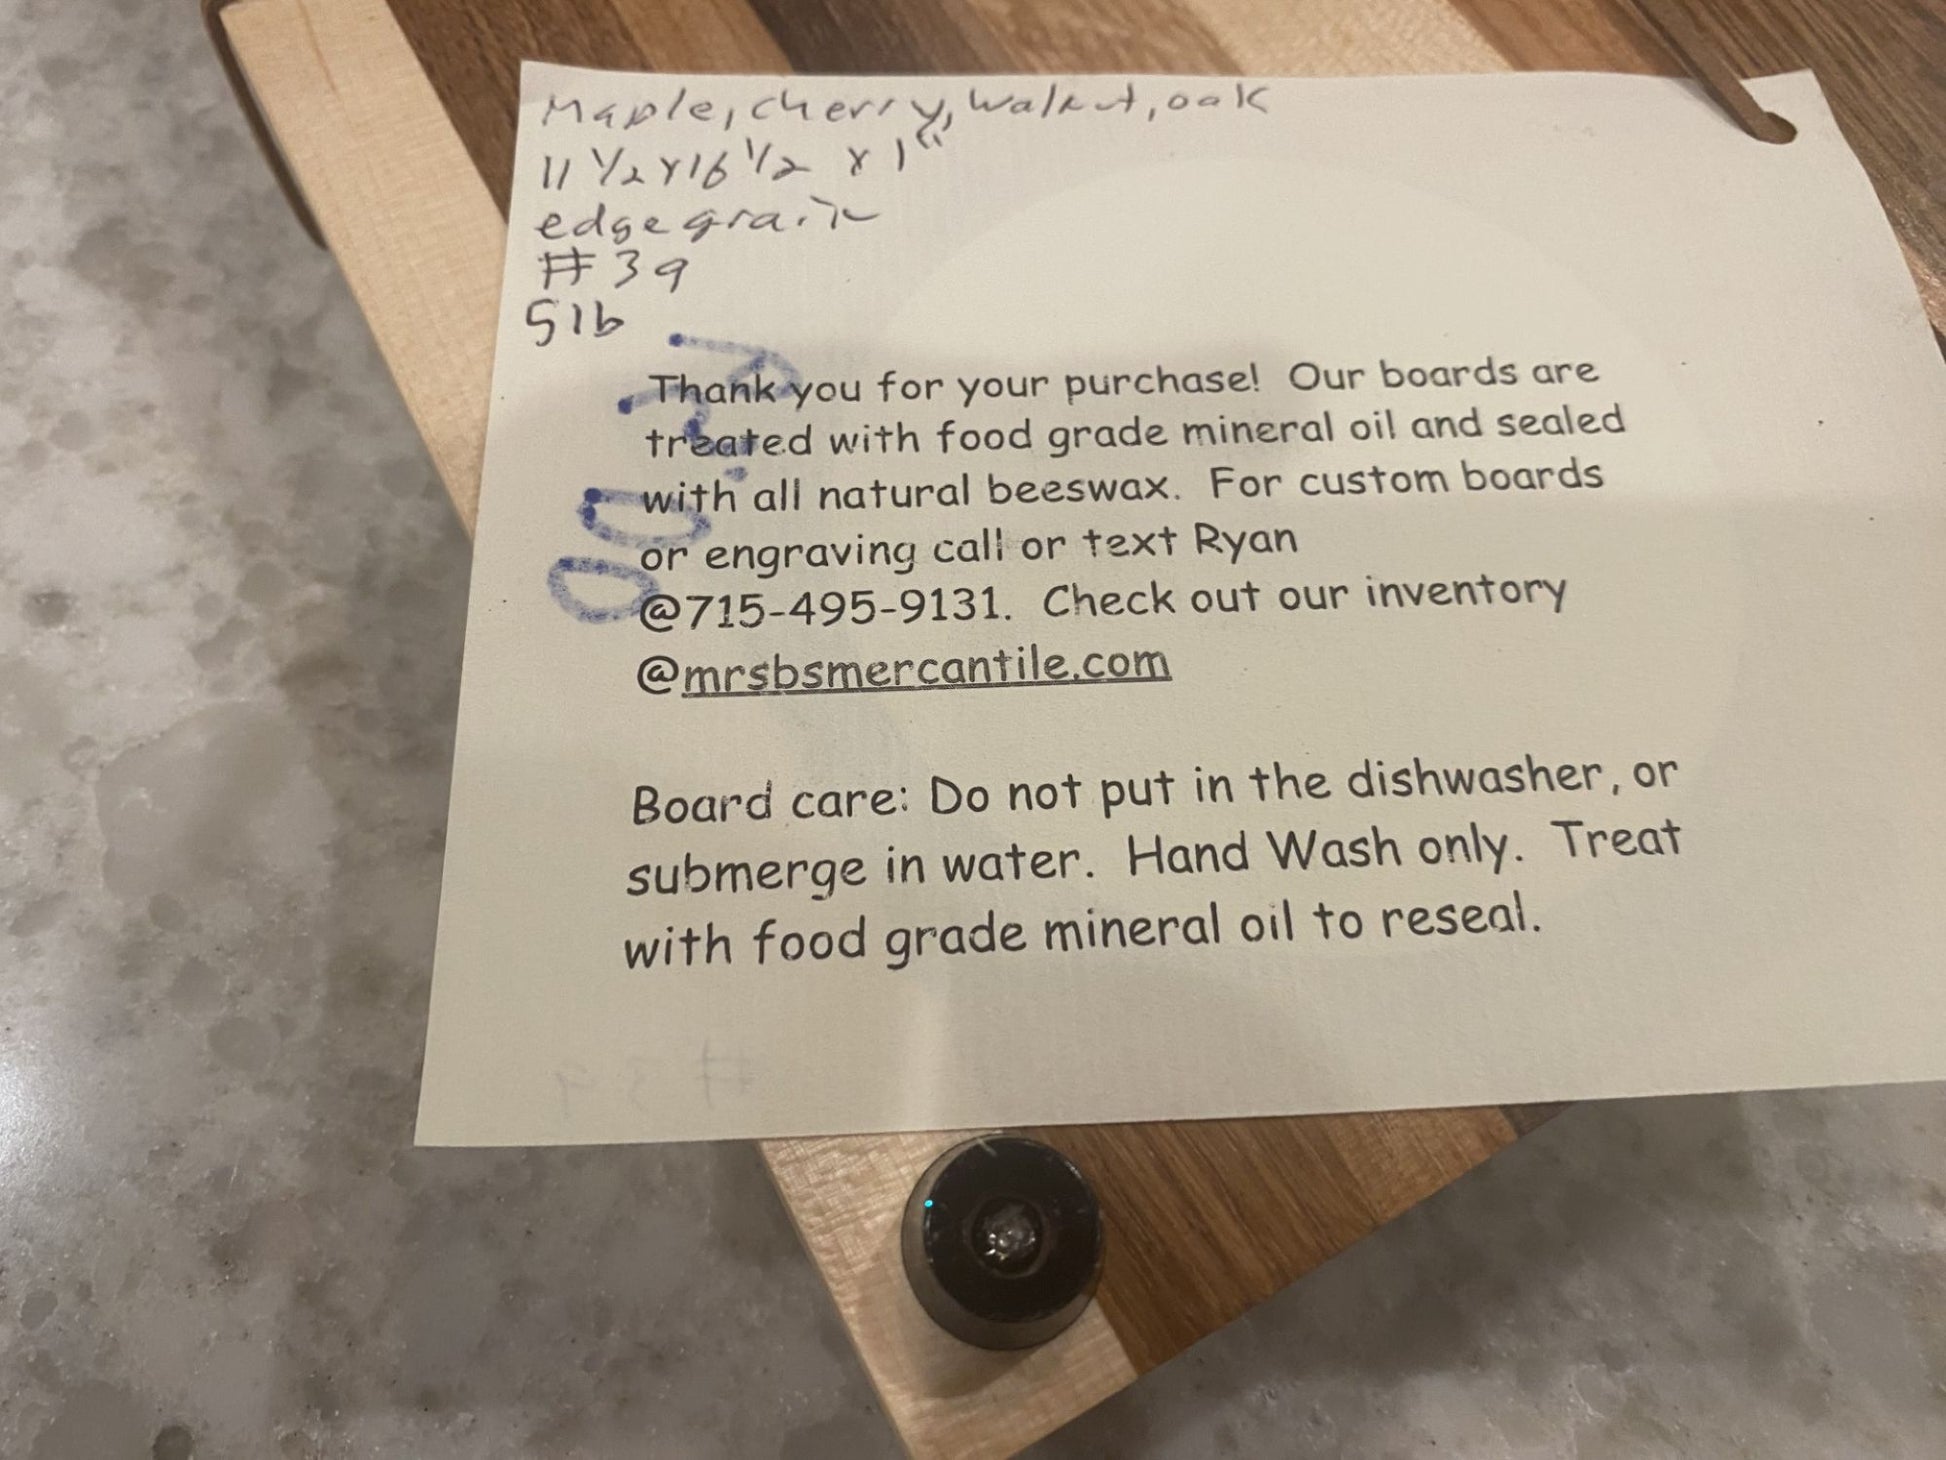 Maple, cherry, walnut, oak
11 1/2 x 16 1/2 x 1"
edge grain
#39
5lb
Thank you for your purchase! Our boards are
treated with food grade mineral oil and sealed
with all natural beeswax. For custom boards
or engraving call or text Ryan
@715-495-9131. Check out our inventory
@mrsbsmercantile.com
Board care: Do not put in the dishwasher, or
submerge in water. Hand Wash only. Treat
with food grade mineral oil to reseal.